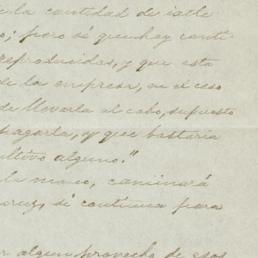 la cantidad de
; pero sé que hay
reproducidas, y que esta
de la empresa, en el caso
de llevarla al cabo, supuesto
agarla, y que bastaria
ultivo alguno."
caminará
si continua para
algun provecho de esos